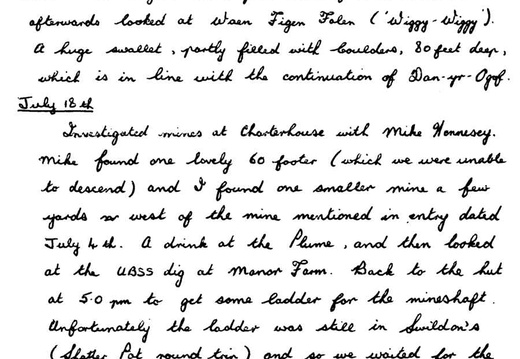 afterwards looked at Waen Figen Felen ('Wiggy-Wiggy').
A huge swallet, partly filled with boulders, 80 feet deep,
which is in line with the continuation of Dan-yr-Ogof.
July 18th
Investigated mines at Charterhouse with Mike Hennesey.
Mike found one lovely 60 footer (which we were unable
to descend) and I found one smaller mine a few
yards west of the mine mentioned in entry dated
July 4th. A drink at the Plume, and then looked
at the UBSS dig at Manor Farm. Back to the hut
at 5.0 pm to get some ladder for the mineshaft.
Unfortunately the ladder was still in Swildon's
(Shatter Pot round trip) and so we waited for the